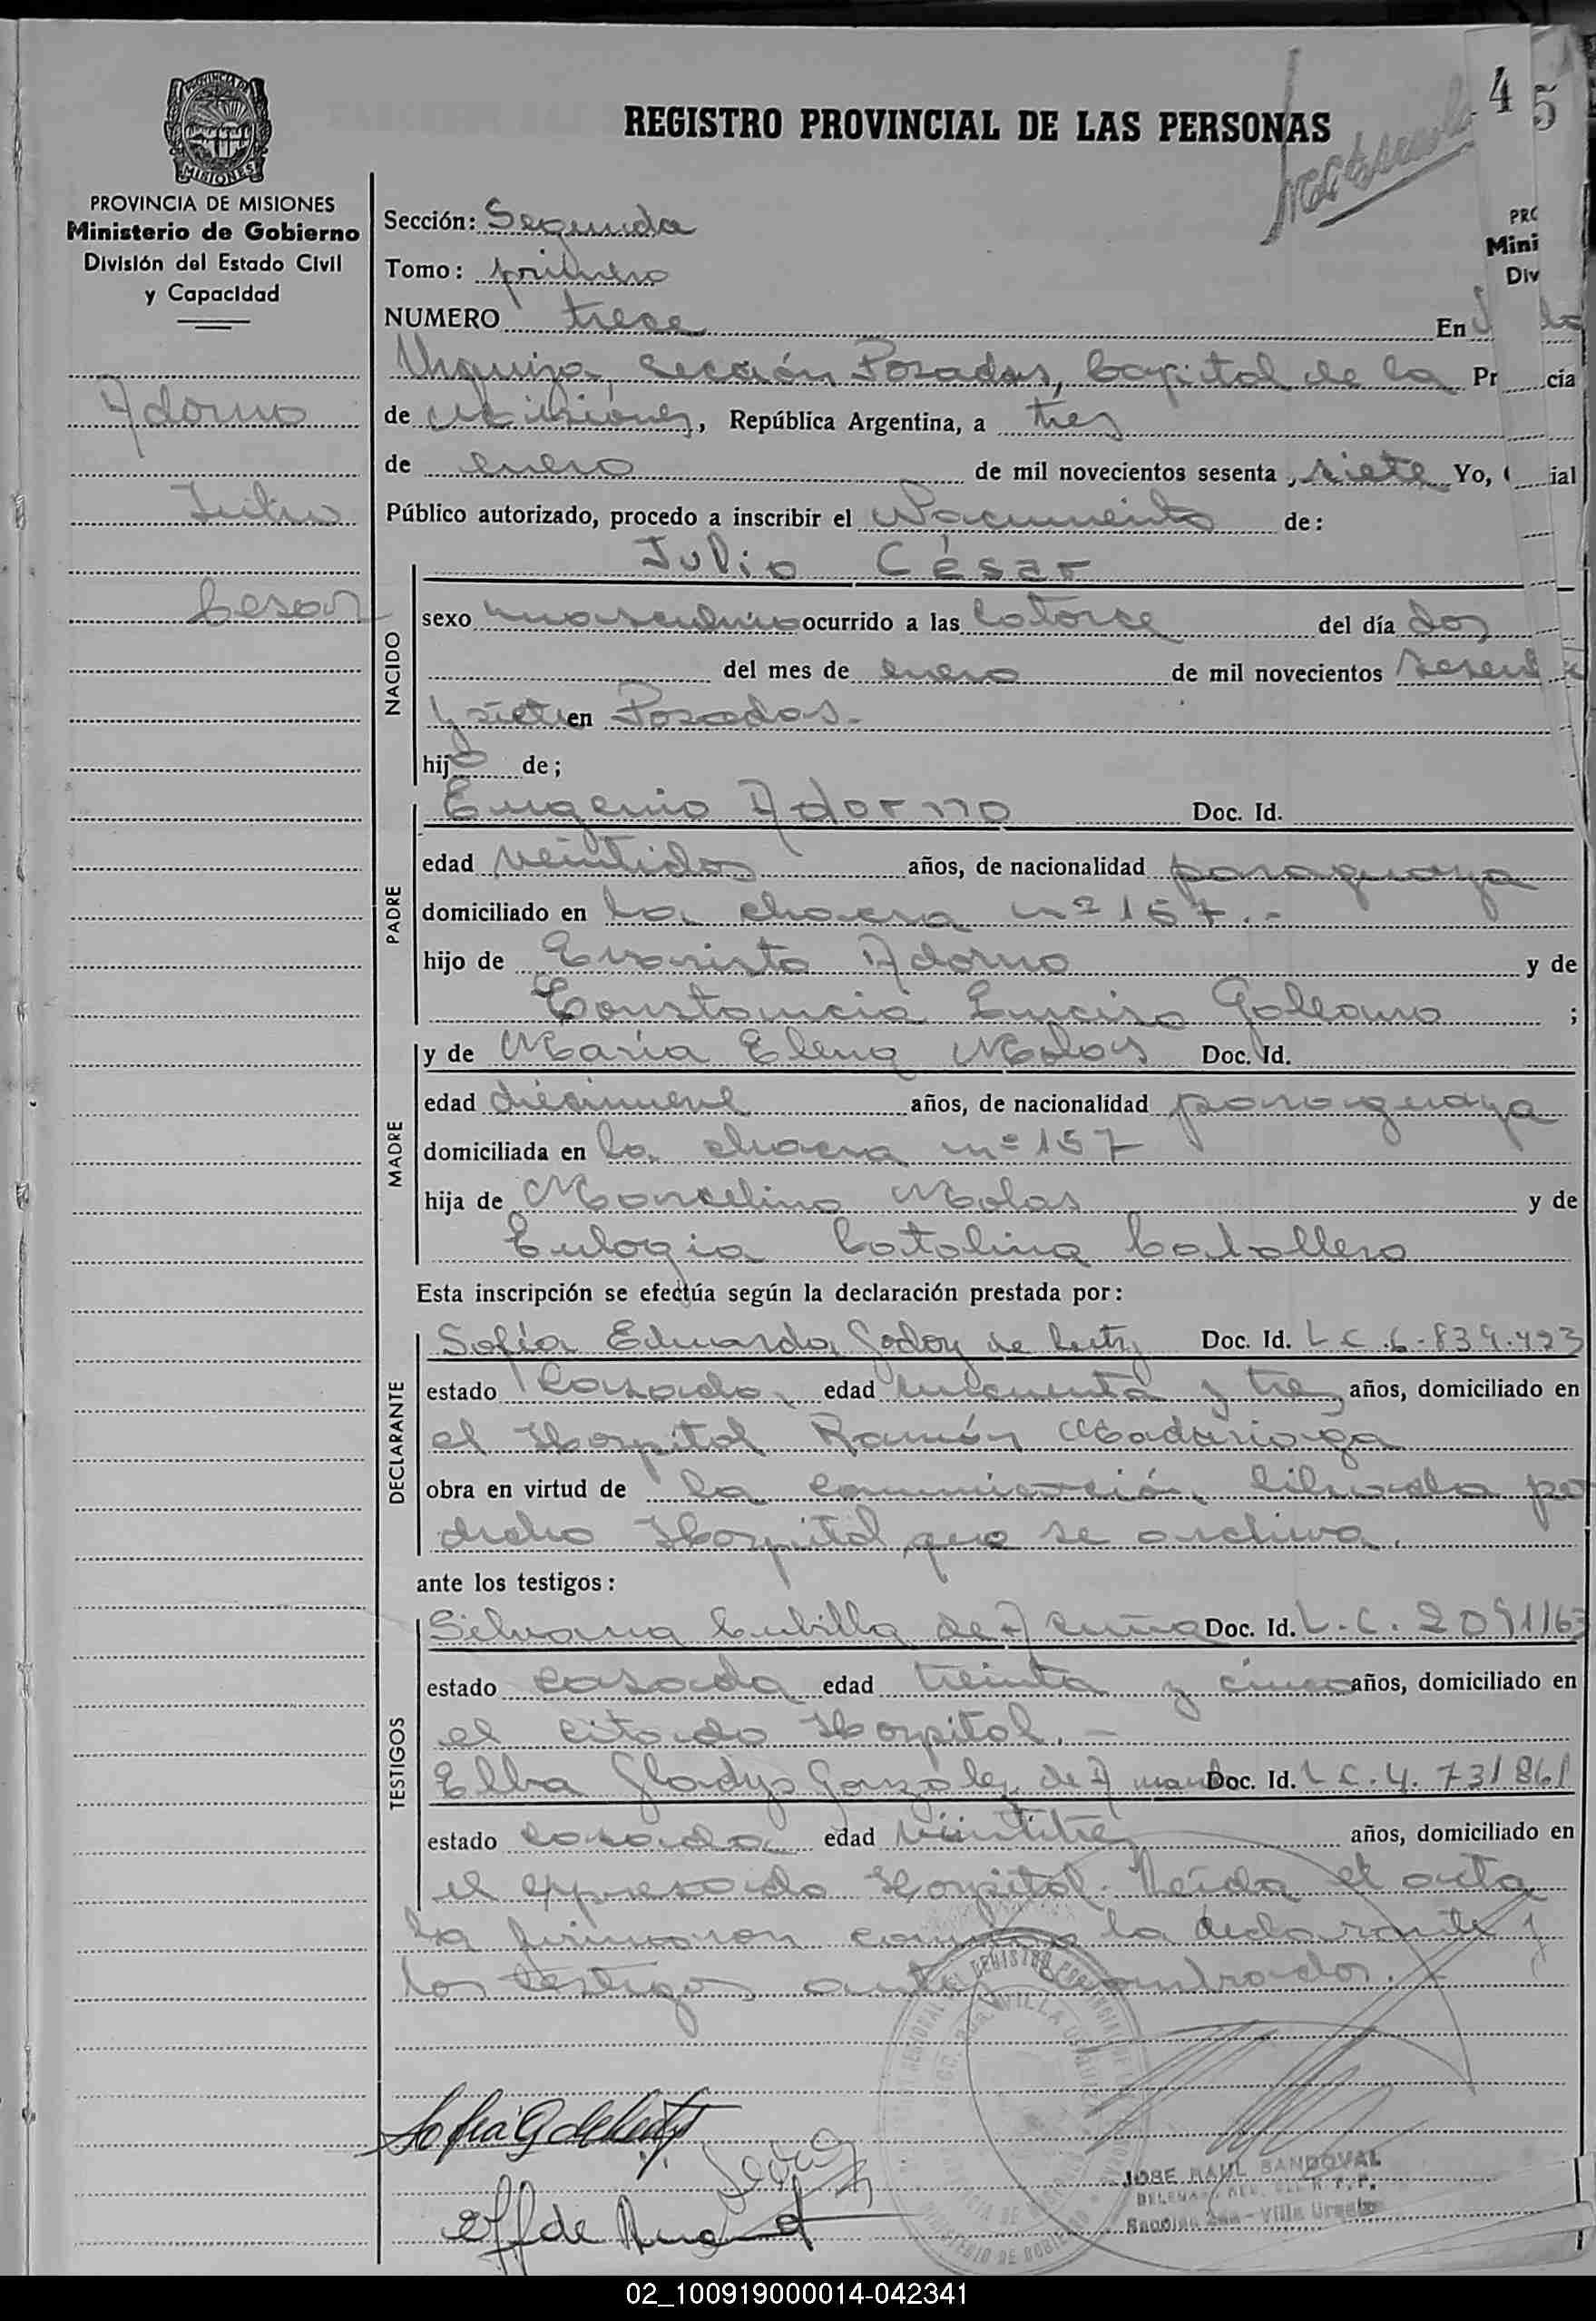 4 5
REGISTRO PROVINCIAL DE LAS PERSONAS
PROVINCIA DE MISIONES
MISIONES
PROVINCIA DE MISIONES
Ministerio de Gobierno
División del Estado Civil
y Capacidad
Adorno
Julio
Cesar
PRO
Mini
Div
Sección: Segunda
Tomo: primero
NUMERO trece En
Urquiza, Sección Posadas, Capital de la Pr cia
de Misiones, República Argentina, a tres
de enero de mil novecientos sesenta y siete Yo, ial
Público autorizado, procedo a inscribir el Nacimiento de:
Julio César
NACIDO
sexo masculino ocurrido a las catorce del día dos
del mes de enero de mil novecientos sesenta
y siete en Posadas.-
hijo de;
PADRE
Eugenio Adorno Doc. Id.
edad veintidos años, de nacionalidad paraguaya
domiciliado en la chacra nº 157.-
hijo de Evaristo Adorno y de
Constancia Enciso Galeano ;
MADRE
y de María Elena Molas Doc. Id.
edad diecinueve años, de nacionalidad paraguaya
domiciliada en la chacra nº 157
hija de Marcelino Molas y de
Eulogia Catalina Caballero
Esta inscripción se efectúa según la declaración prestada por:
DECLARANTE
Sofía Eduarda Godoy de Doc. Id. L.C. 6.839.423
estado Casada, edad cincuenta y tres años, domiciliado en
el Hospital Ramón Madariaga
obra en virtud de la comunicación librada por
dicho Hospital que se archiva.
ante los testigos:
TESTIGOS
Silvana Cubilla de Acuña Doc. Id. L.C. 2091163
estado casada edad treinta y cinco años, domiciliado en
el citado Hospital.-
Elba Gladys Gonzalez de Doc. Id. L.C. 4.731861
estado casada edad veintitres años, domiciliado en
el expresado Hospital. Leída el acta
la firmaron conmigo la declarante y
los testigos antes nombrados.-
JOSE RAUL SANDOVAL
Sección 2da - Villa Urquiza
02_100919000014-042341